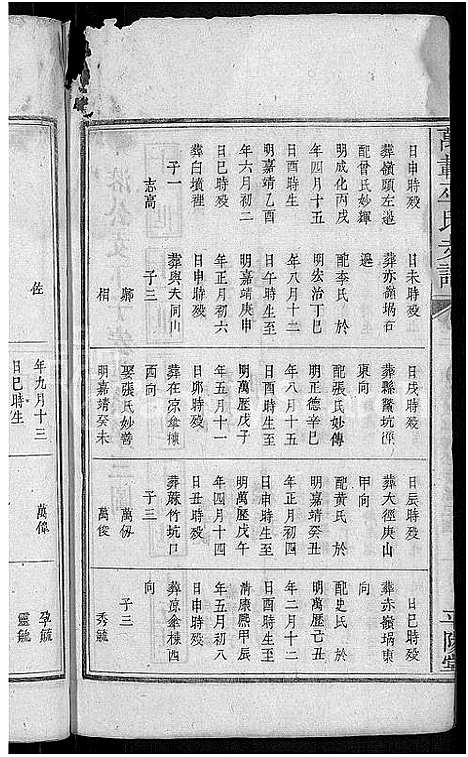 日申時殁
葬嶺頭左邊
配曾氏妙輝
明成化丙戌
年四月十五
日酉時生
明嘉靖乙酉
年六月初二
日巳時殁
葬白墳裡
子一
志高
日未時殁
葬赤嶺堝右
邊
配李氏於
明宏治丁巳
年八月十二
日午時生
明嘉靖庚申
年正月初六
日申時殁
葬與夫同山
子三
鄺
相
日戌時殁
葬縣鰲坑源
東向
配張氏妙傳
明正德辛巳
年八月十五
日酉時生
明萬歷戊子
年五月十一
日卯時殁
葬在凉傘樓
酉向
娶張氏妙善
明嘉靖癸未
日辰時殁
葬大徑庚山
甲向
配黄氏於
明嘉靖癸丑
年正月十四
日申時生
明萬歷戊午
年四月十四
日丑時殁
葬蔴竹坑口
子三
萬仞
萬俊
日巳時殁
葬赤嶺堝東
向
配史氏於
明萬歷己丑
年二月十二
日酉時生
清康熙甲辰
年五月初八
日申時殁
葬凉傘樓酉
向
子三
秀毓
平陽堂
佐
年九月十三
日巳時生
萬偉
孕毓
靈毓